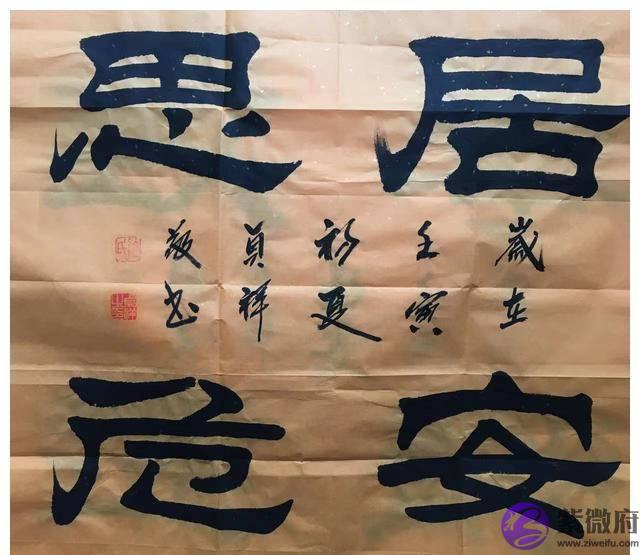 居安
思危
歲在
壬寅
初夏
貞祥
敬书
紫微府
www.ziweifu.com